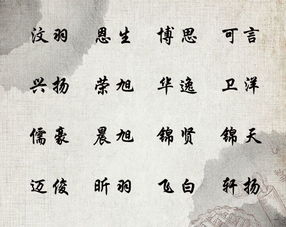 汶羽 恩生 博思 可言
兴扬 荣旭 华逸 卫洋
儒豪 晨旭 锦贤 锦天
迈俊 昕羽 飞白 轩扬